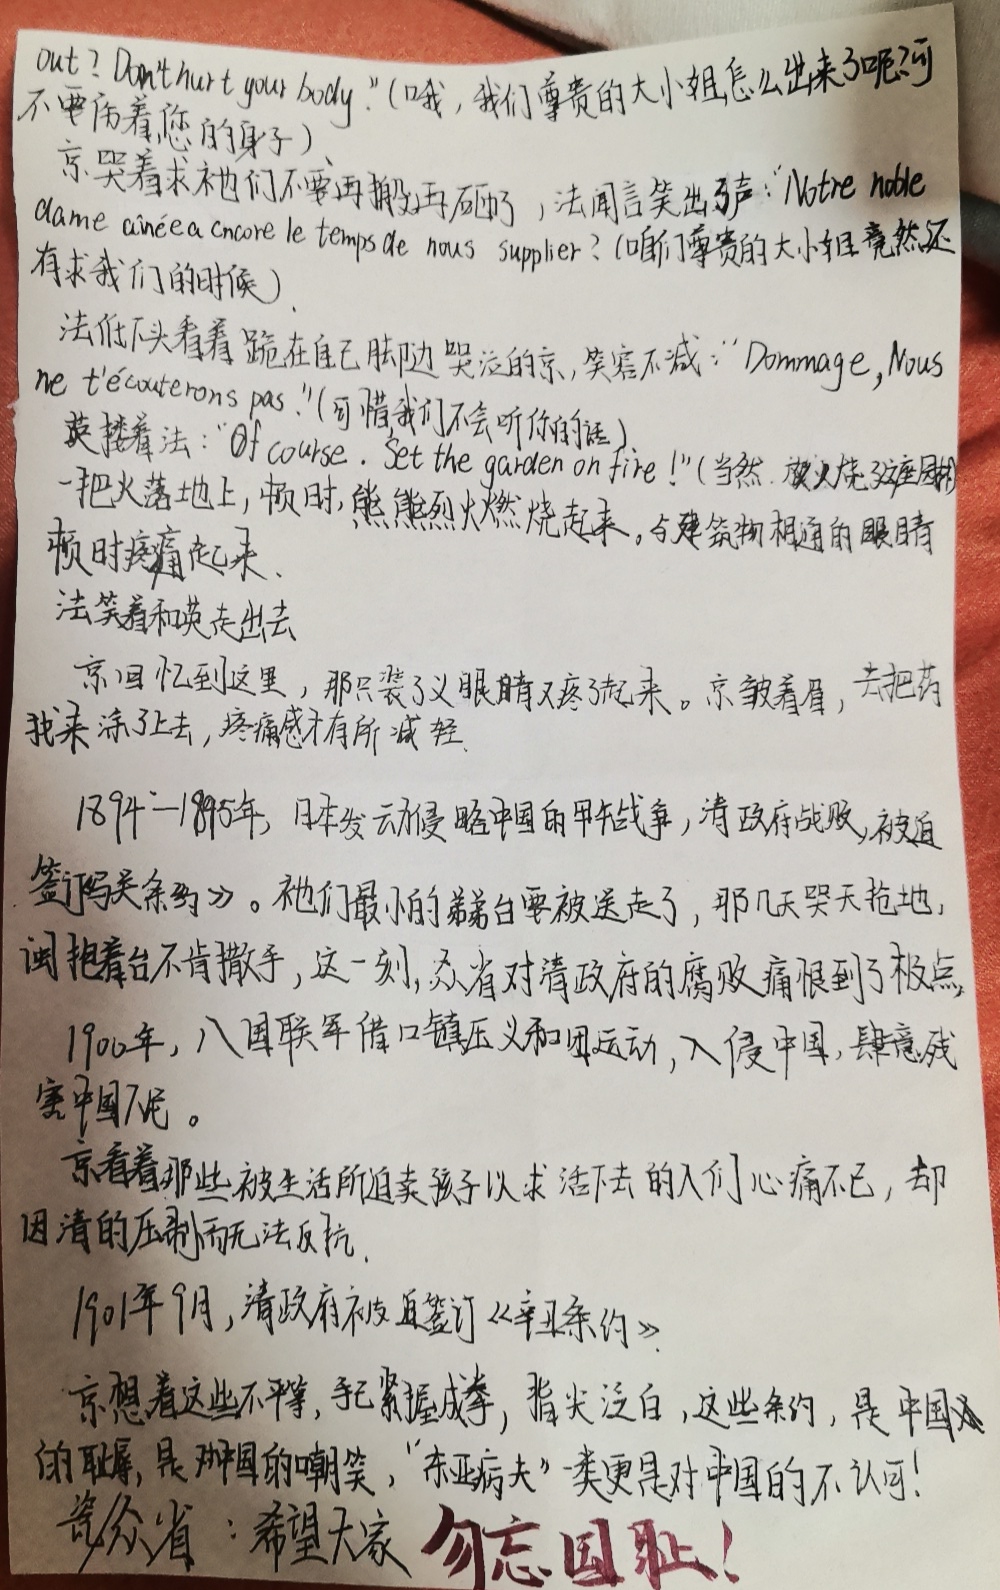 out? Don't hurt your body."(哦，我们尊贵的大小姐怎么出来了呢？可
不要伤着您的身子)
京哭着求祂们不要再搬再砸了，法闻言笑出了声："Notre noble
dame aînée a encore le temps de nous supplier?(咱们尊贵的大小姐竟然还
有求我们的时候)
法低下头看着跪在自己脚边哭泣的京，笑容不减："Dommage, Nous
ne t'écouterons pas."(可惜我们不会听你的话)
英搂着法："Of course. Set the garden on fire!"(当然.放火烧了这座园林)
一把火落地上，顿时，熊熊烈火燃烧起来。与建筑物相通的眼睛
顿时疼痛起来.
法笑着和英走出去
京回忆到这里，那只装了义眼的眼睛又疼了起来。京皱着眉，去把药
找来涂了上去，疼痛感才有所减轻.
1894—1895年，日本发动侵略中国的甲午战争，清政府战败，被迫
签订《马关条约》。祂们最小的弟弟台要被送走了，那几天哭天抢地，
闽抱着台不肯撒手，这一刻，众省对清政府的腐败痛恨到了极点，
1900年，八国联军借口镇压义和团运动，入侵中国，肆意残
害中国人民。
京看着那些被生活所迫卖孩子以求活下去的人们心痛不已，却
因清的压制而无法反抗.
1901年9月，清政府被迫签订《辛丑条约》
京想着这些不平等，手已紧握成拳，指尖泛白，这些条约，是中国人
的耻辱，是对中国的嘲笑，"东亚病夫"一类更是对中国的不认可！
瓷众省：希望大家 勿忘国耻！